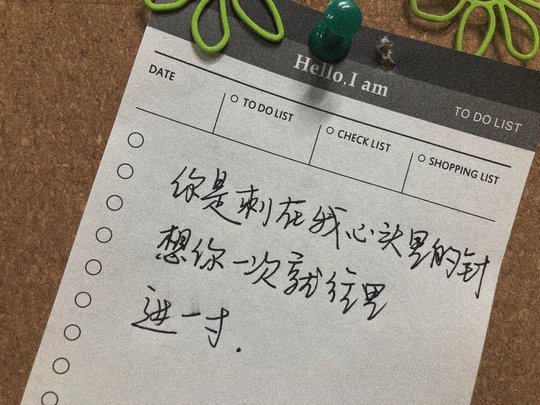 Hello,I am
TO DO LIST
DATE
TO DO LIST
CHECK LIST
SHOPPING LIST
你是刺在我心头里的针
想你一次就往里
进一寸.